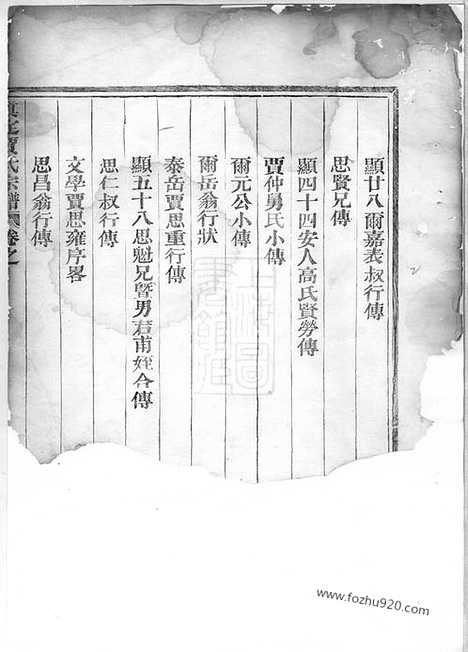 顯廿八爾嘉表叔行傳
思賢兄傳
顯四十四安人高氏賢勞傳
賈仲舅氏小傳
爾元公小傳
爾岳翁行狀
泰岳賈思重行傳
顯五十八思魁兄暨男君甫姪合傳
思仁叔行傳
文學賈思雍序畧
思昌翁行傳
賈氏宗譜 卷之
www.fozhu920.com